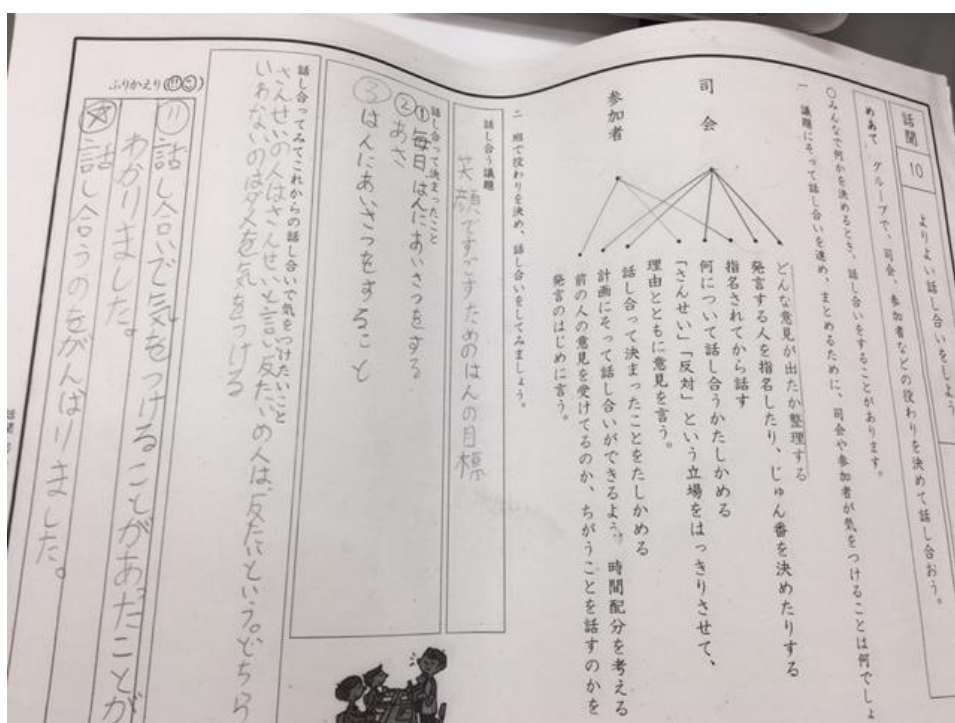 話聞
10
よりよい話し合いをしよう
めあて グループで、司会、参加者などの役わりを決めて話し合おう。
〇みんなで何かを決めるとき、話し合いをすることがあります。
一 議題にそって話し合いを進め、まとめるために、司会や参加者が気をつけることは何でしょ
司会
参加者
どんな意見が出たか整理する
発言する人を指名したり、じゅん番を決めたりする
指名されてから話す
何について話し合うかたしかめる
「さんせい」「反対」という立場をはっきりさせて、
理由とともに意見を言う。
話し合って決まったことをたしかめる
計画にそって話し合いができるよう、時間配分を考える
前の人の意見を受けてるのか、ちがうことを話すのかを
発言のはじめに言う。
二 班で役わりを決め、話し合いをしてみましょう。
話し合う議題
笑顔ですごすためのはんの目標
話し合って決まったこと
①毎日、はんにあいさつをする
②あさ
③はんにあいさつをすること
話し合ってみてこれからの話し合いで気をつけたいこと
さんせいの人はさんせいと言い反たいの人は、反たいという。どちら
いわないのはダメを気をつける
ふりかえり
話し合いで気をつけることがあったことが
わかりました。
話し合うのをがんばりました。